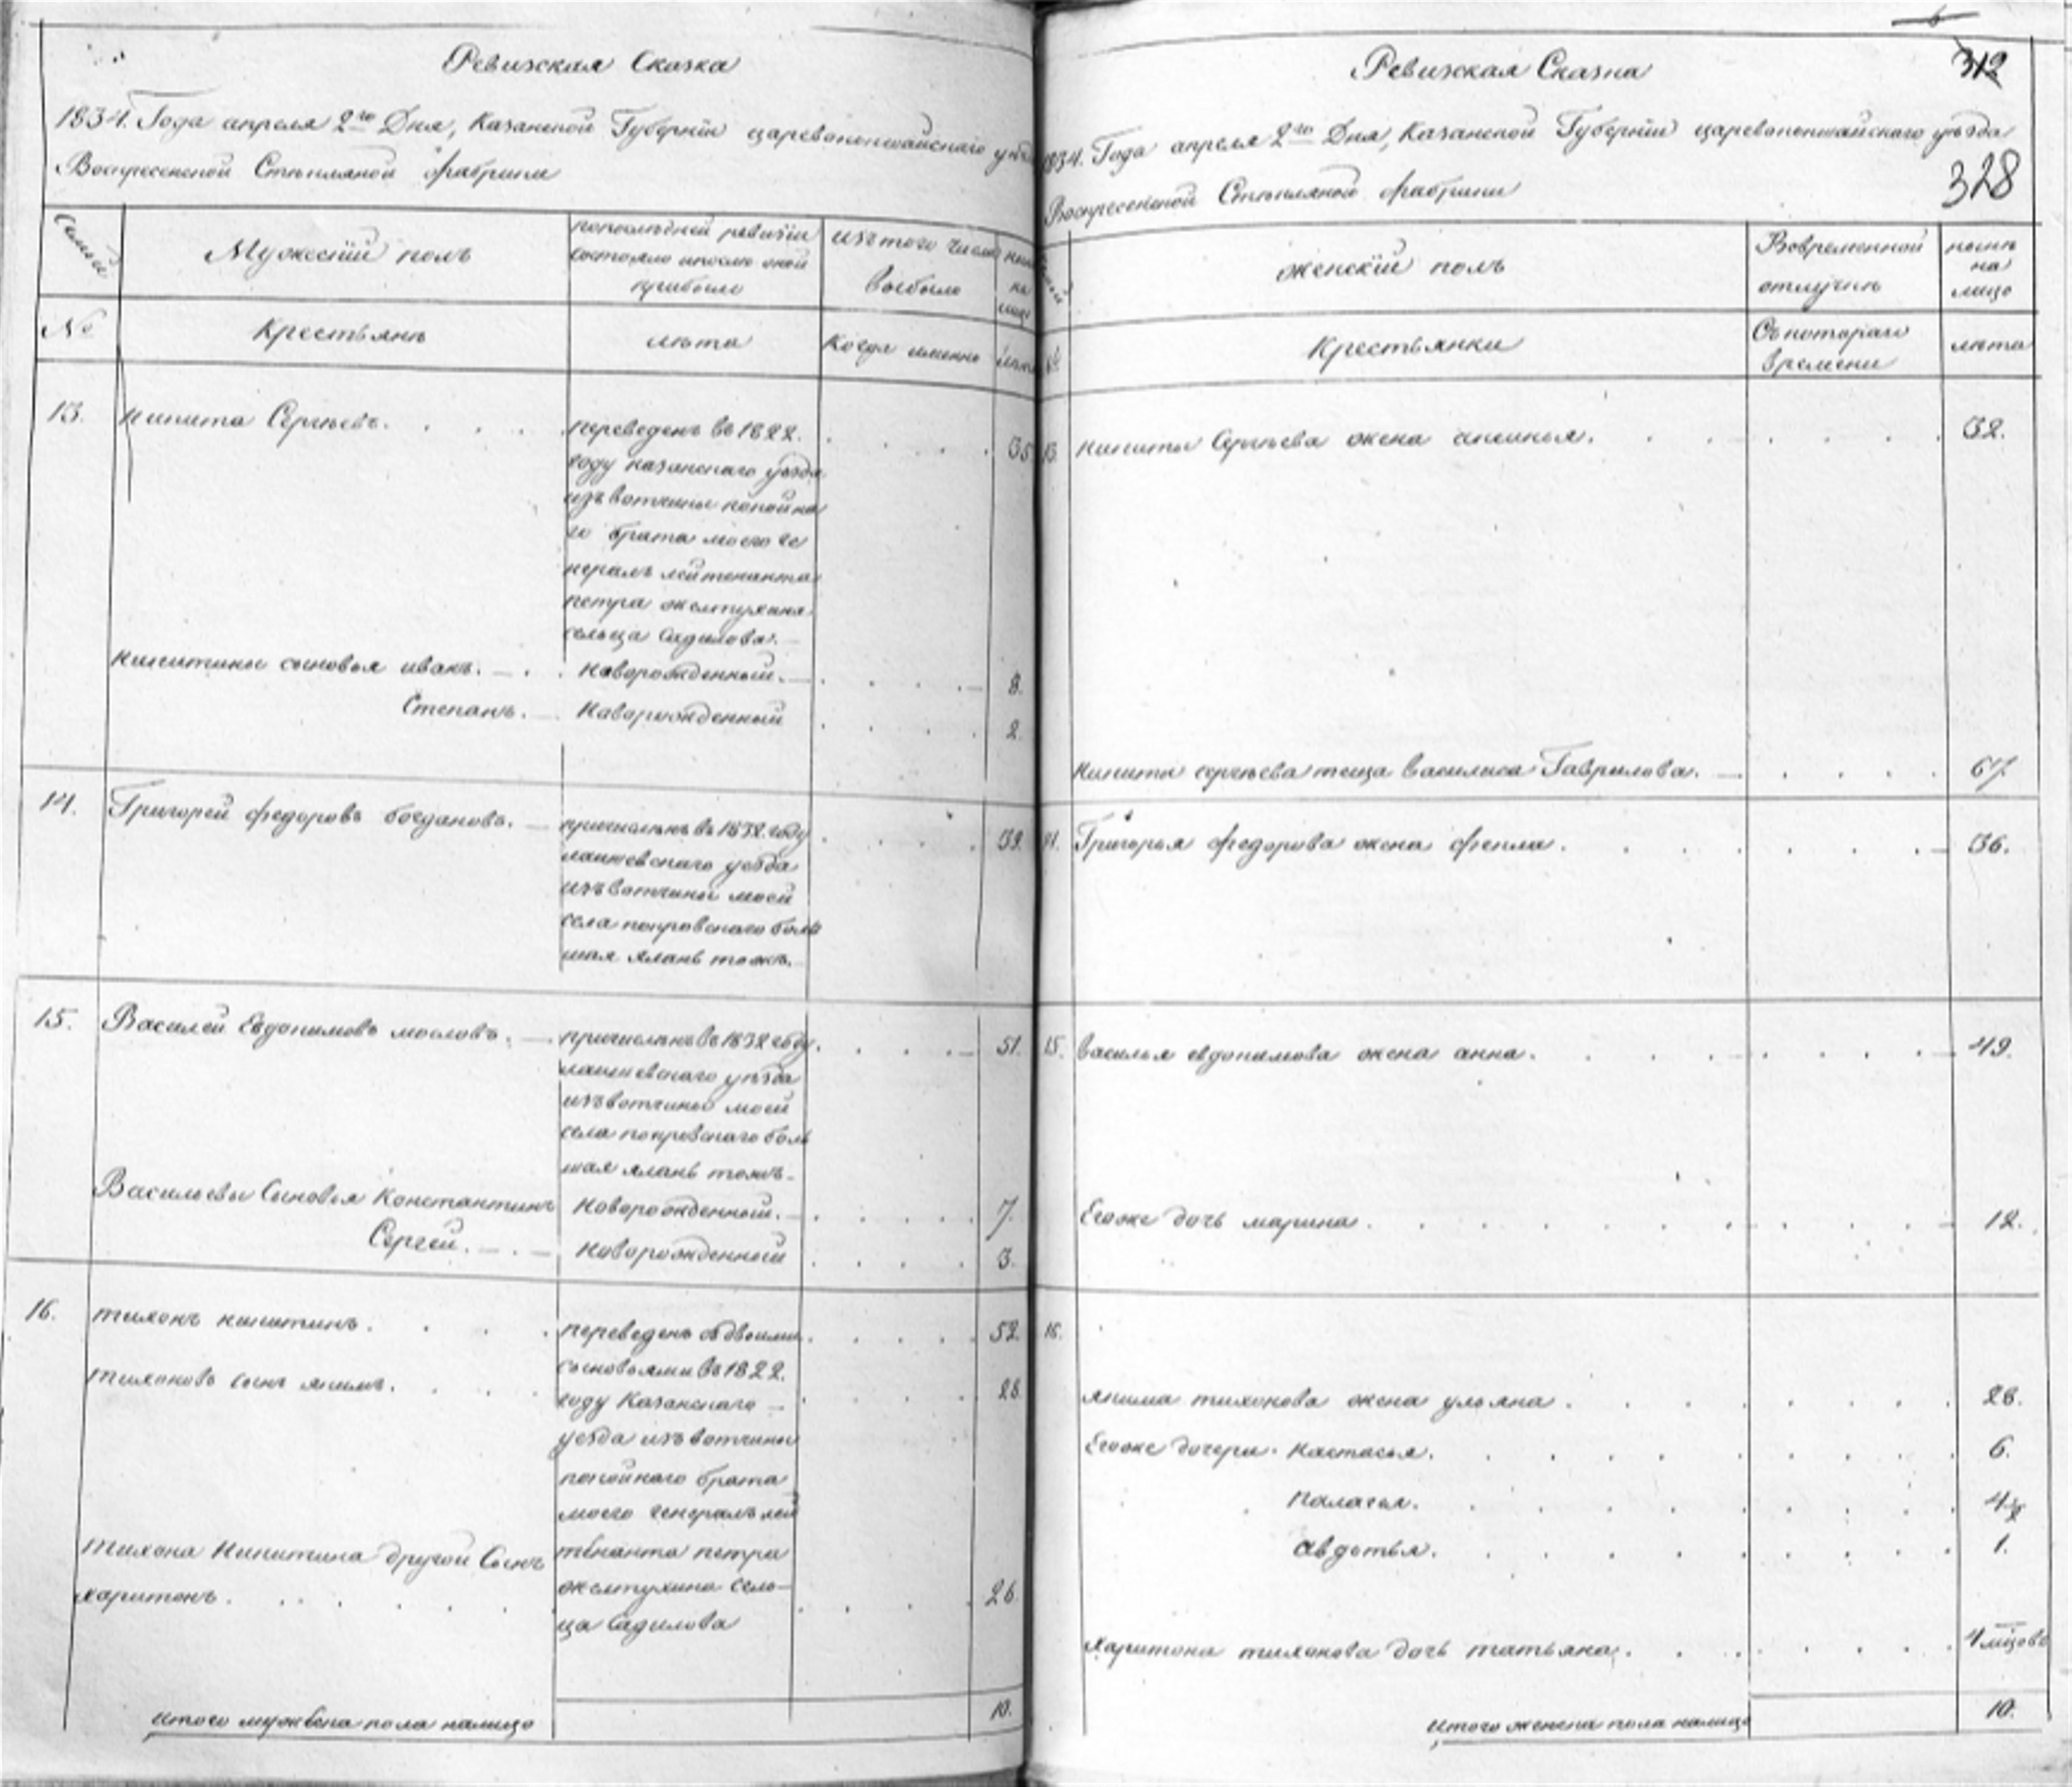 Ревизская Сказка
1834. Года апреля 2го Дня, Казанской Губернїи царевококшайскаго уѣз
Воскресенской Стекляной фабрики
Семьи
Мужескїй полъ
попослѣдней ревизїи
состояло ипосле оной
прибыло
изътого числа
выбыло
ныне
на
лицо
№
Крестьянѣ
лѣта
Когда именно
лѣта
13.
никита Сергѣевъ.
переведенъ въ 1822.
35
году казанскаго уѣзда
изъ вотчины покойна
го брата моего ге
нералъ лейтенанта
петра желтухина
сельца Садилова.
никитины сыновья иванъ.
новорожденный.
8.
Степанъ.
новорожденный
2.
14.
Григорей федоровъ богдановъ.
причисленъ въ 1832 году
39.
лаишевскаго уезда
изъ вотчины моей
села покровскаго боль
шая елань тожъ.
15.
Василей Евдокимовъ мословъ.
причисленъ въ 1832 году.
51.
лаишевскаго уѣзда
изъ вотчины моей
села покровскаго боль
шая елань тожъ.
Васильевы Сыновья Константинъ
новорожденный.
7.
Сергей.
новорожденный
3.
16.
тихонъ никитинъ.
переведенъ сь двоими
52.
сыновьями въ 1822.
тихоновъ сынъ якимъ.
28.
году Казанскаго
уезда изъ вотчины
покойнаго брата
моего генералъ лей
тихона Никитина другой Сынъ
тенанта петра
харитонъ.
желтухина сель
26.
ца Садилова
итого мужеска пола налицо
10.
6
312
Ревизская Сказка
1834. Года апреля 2го Дня, Казанской Губернїи царевококшайскаго уѣзда
328
Воскресенской Стекляной фабрики
женскїй полъ
Вовременной
отлучкѣ
нынѣ
на
лицо
№
Крестьянки
Съ котораго
времени
лѣта
13.
никиты Сергѣева жена аксинья.
32.
никиты сергѣева теща василиса Гаврилова.
67.
14.
Григорья федорова жена фекла.
36.
15.
василья евдокимова жена анна.
49.
Егоже дочь марина.
12.
16.
якима тихонова жена ульяна.
28.
Егоже дочери. настасья.
6.
палагея.
4½
авдотья.
1.
харитона тихонова дочь татьяна.
4 мцовъ
итого женска пола налицо
10.